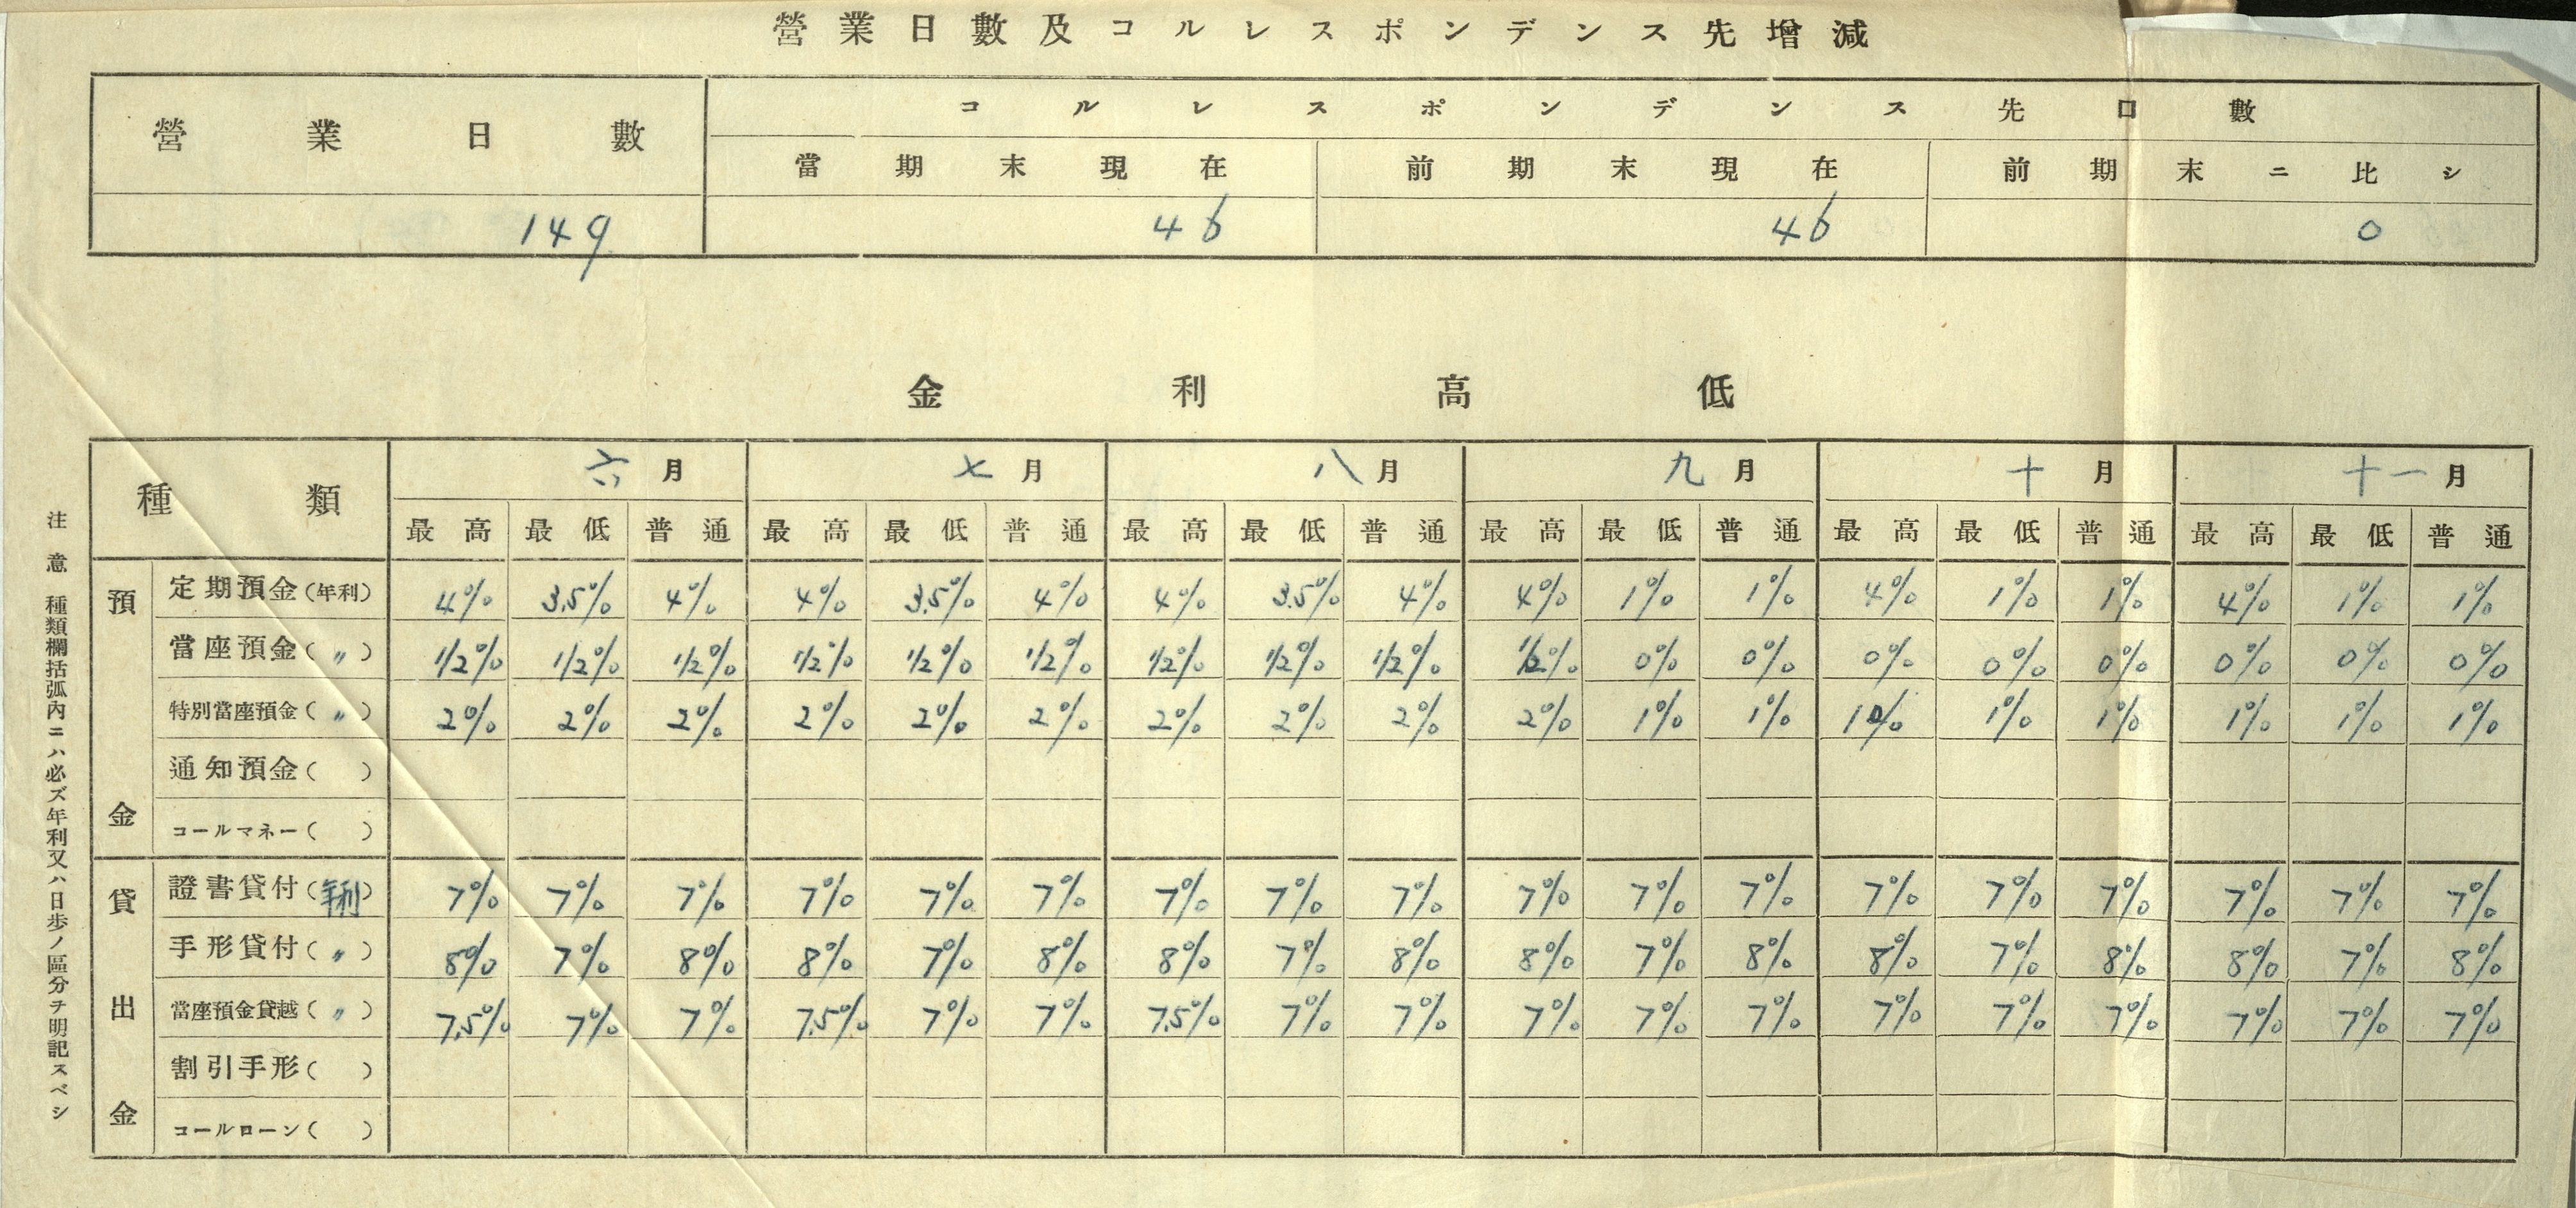 營業日數及コルレスポンデンス先增減
營業日數 コルレスポンデンス先口數
當期末現在 前期末現在 前期末ニ比シ
149 46 46 0
金利高低
種類 六月 七月 八月 九月 十月 十一月
最高 最低 普通 最高 最低 普通 最高 最低 普通 最高 最低 普通 最高 最低 普通 最高 最低 普通
預金
定期預金(年利) 4% 3.5% 4% 4% 3.5% 4% 4% 3.5% 4% 4% 1% 1% 4% 1% 1% 4% 1% 1%
當座預金(〃) 1/2% 1/2% 1/2% 1/2% 1/2% 1/2% 1/2% 1/2% 1/2% 1/2% 0% 0% 0% 0% 0% 0% 0% 0%
特別當座預金(〃) 2% 2% 2% 2% 2% 2% 2% 2% 2% 2% 1% 1% 1% 1% 1% 1% 1% 1%
通知預金( )
コールマネー( )
貸出金
證書貸付(年利) 7% 7% 7% 7% 7% 7% 7% 7% 7% 7% 7% 7% 7% 7% 7% 7% 7% 7%
手形貸付(〃) 8% 7% 8% 8% 7% 8% 8% 7% 8% 8% 7% 8% 8% 7% 8% 8% 7% 8%
當座預金貸越(〃) 7.5% 7% 7% 7.5% 7% 7% 7.5% 7% 7% 7% 7% 7% 7% 7% 7% 7% 7% 7%
割引手形( )
コールローン( )
注意 種類欄括弧內ニハ必ズ年利又ハ日步ノ區分ヲ明記スベシ